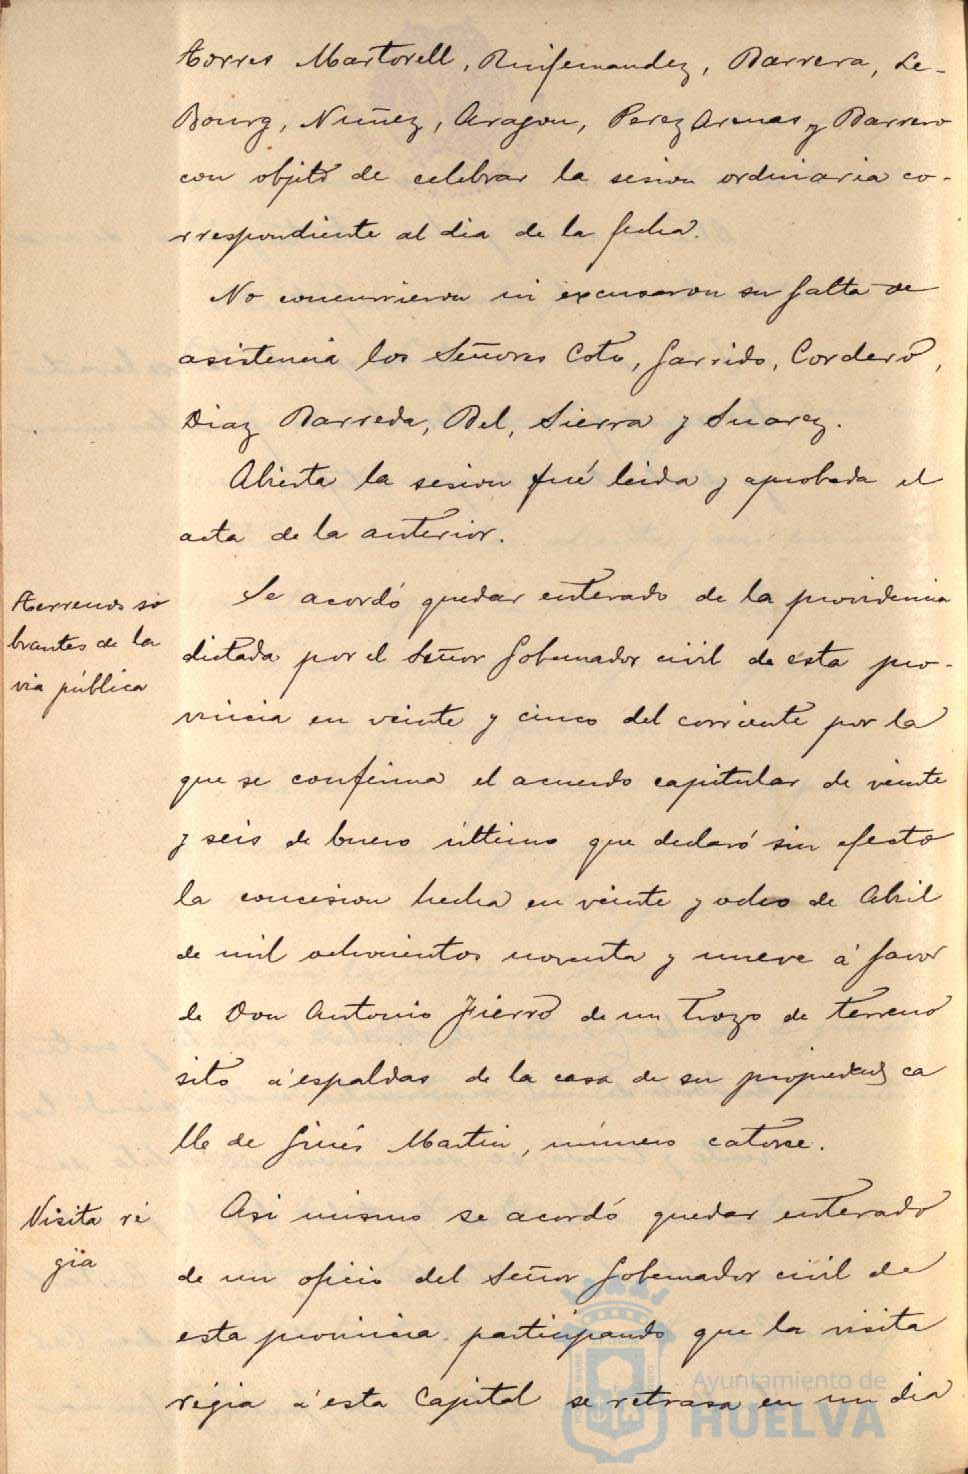 Torres Martorell, Ruifernandez, Barrera, Le-
Bourg, Nuñez, Aragon, Perez Arenas y Barrero
con objeto de celebrar la sesion ordinaria co-
rrespondiente al dia de la fecha.
No concurrieron ni excusaron su falta de
asistencia los Señores Coto, Garrido, Cordero,
Diaz Barreda, Bel, Sierra y Suarez.
Abierta la sesion fué leida y aprobada el
acta de la anterior.
Terrenos so
brantes de la
via pública
Se acordó quedar enterado de la providencia
dictada por el Señor Gobernador civil de esta pro-
vincia en veinte y cinco del corriente por la
que se confirma el acuerdo capitular de veinte
y seis de Enero último que declaró sin efecto
la concesion hecha en veinte y ocho de Abril
de mil ochocientos noventa y nueve á favor
de Don Antonio Fierro de un trozo de terreno
sito á espaldas de la casa de su propiedad ca
lle de Ginés Martin, número catorce.
Visita ré
gia
Asi mismo se acordó quedar enterado
de un oficio del Señor Gobernador civil de
esta provincia participando que la visita
régia á esta Capital se retrasa en un dia
Ayuntamiento de
HUELVA